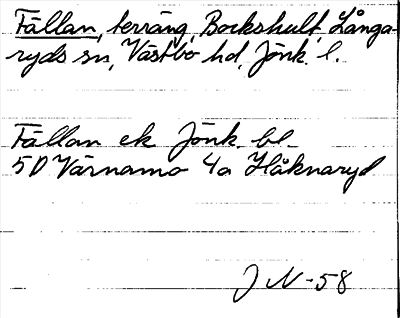 Fällan, terräng, Bockshult, Långa-
ryds sn, Västbo hd, Jönk. l.
Fällan ek Jönk. bl.
5D Värnamo 4a Håknaryd
J N-58